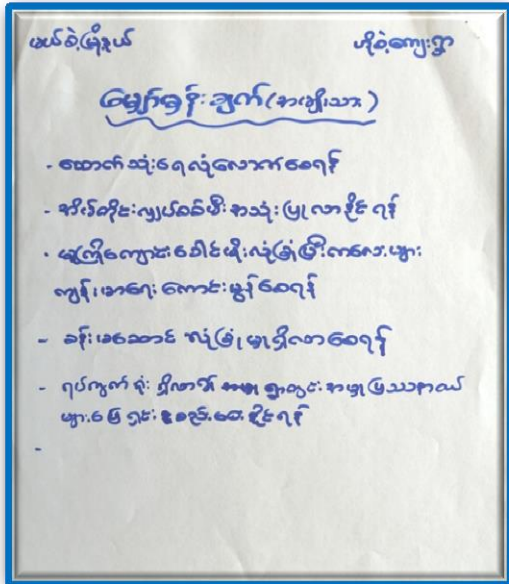 မယ်စဲ့မြို့နယ် ဟိုစဲ့ကျေးရွာ
မျှော်မှန်းချက် (အမျိုးသား)
- သောက်သုံးရေလုံလောက်စေရန်
- အိမ်တိုင်းလျှပ်စစ်မီးအသုံးပြုလာနိုင်ရန်
- မူကြိုကျောင်းခေါင်မိုးလုံခြုံပြီးကလေးများ
ကျန်းမာရေးကောင်းမွန်စေရန်
- ခန်းမဆောင် လုံခြုံမှုရှိလာစေရန်
- ရပ်ကွက်ရုံး ရှိလာ၍ ရွာတွင်းအမှုပြဿနာယ်
များဖြေရှင်း ပေးနိုင်ရန်
-